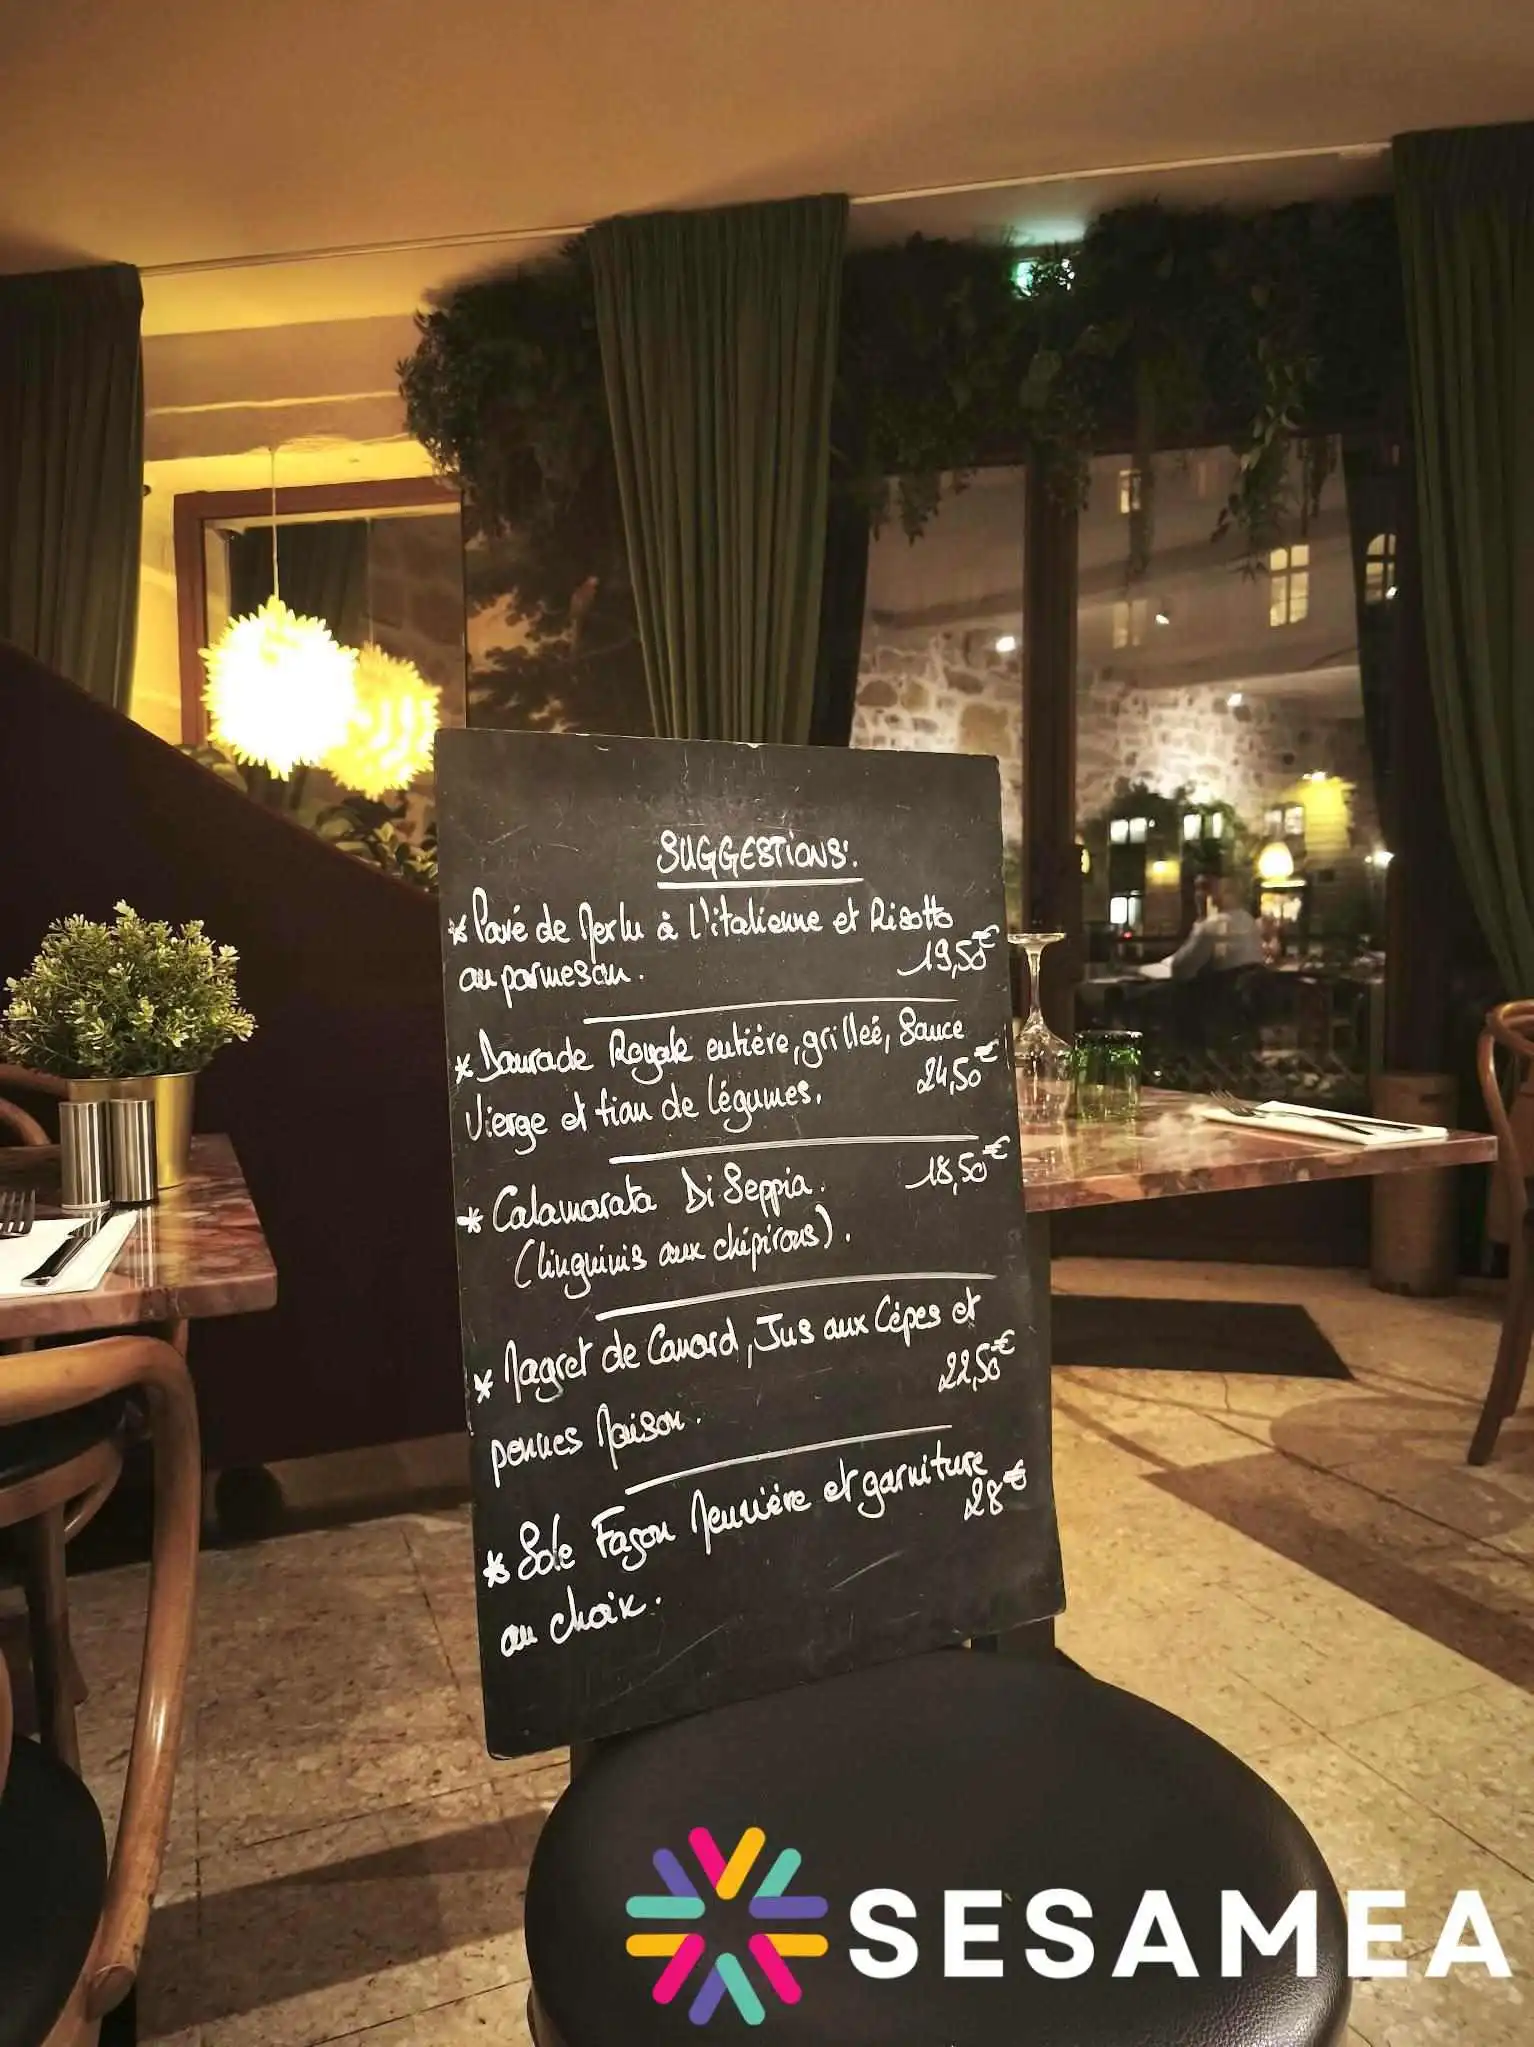 SUGGESTIONS:
* Pavé de Merlu à l'italienne et Risotto
au parmesan. 19,50€
* Daurade Royale entière, grilleé, Sauce
Vierge et tian de légumes. 24,50€
* Calamarata Di Seppia. 18,50€
(linguinis aux chipirons).
* Magret de Canard, Jus aux Cèpes et
pennes Maison. 22,50€
* Sole Façon Meunière et garniture
au choix. 28€
SESAMEA